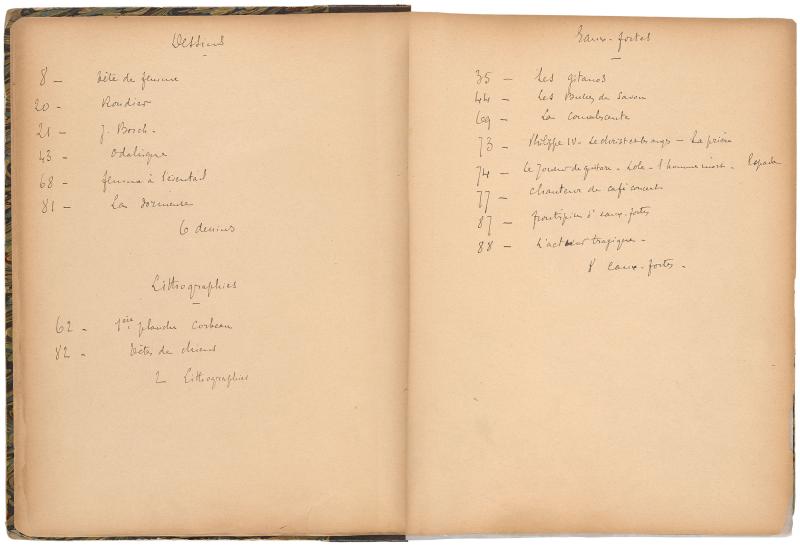 Dessins
8 - Tête de femme
20 - Roudier
21 - J. Bosch -
43 - Odalisque
68 - femme à l'éventail
81 - La dormeuse
6 dessins
Lithographies
62 - 1ère planche Corbeau
82 - Têtes de chiens
2 Lithographies
Eaux-fortes
35 - Les gitanos
44 - Les Bulles de Savon
69 - La convalescente
73 - Philippe IV - Le christ et les anges - La prière
74 - Le Joueur de guitare - Lola - l'homme mort - Espada
77 - Chanteur de café concert
87 - frontispice d'eaux-fortes
88 - L'acteur tragique -
8 eaux-fortes -